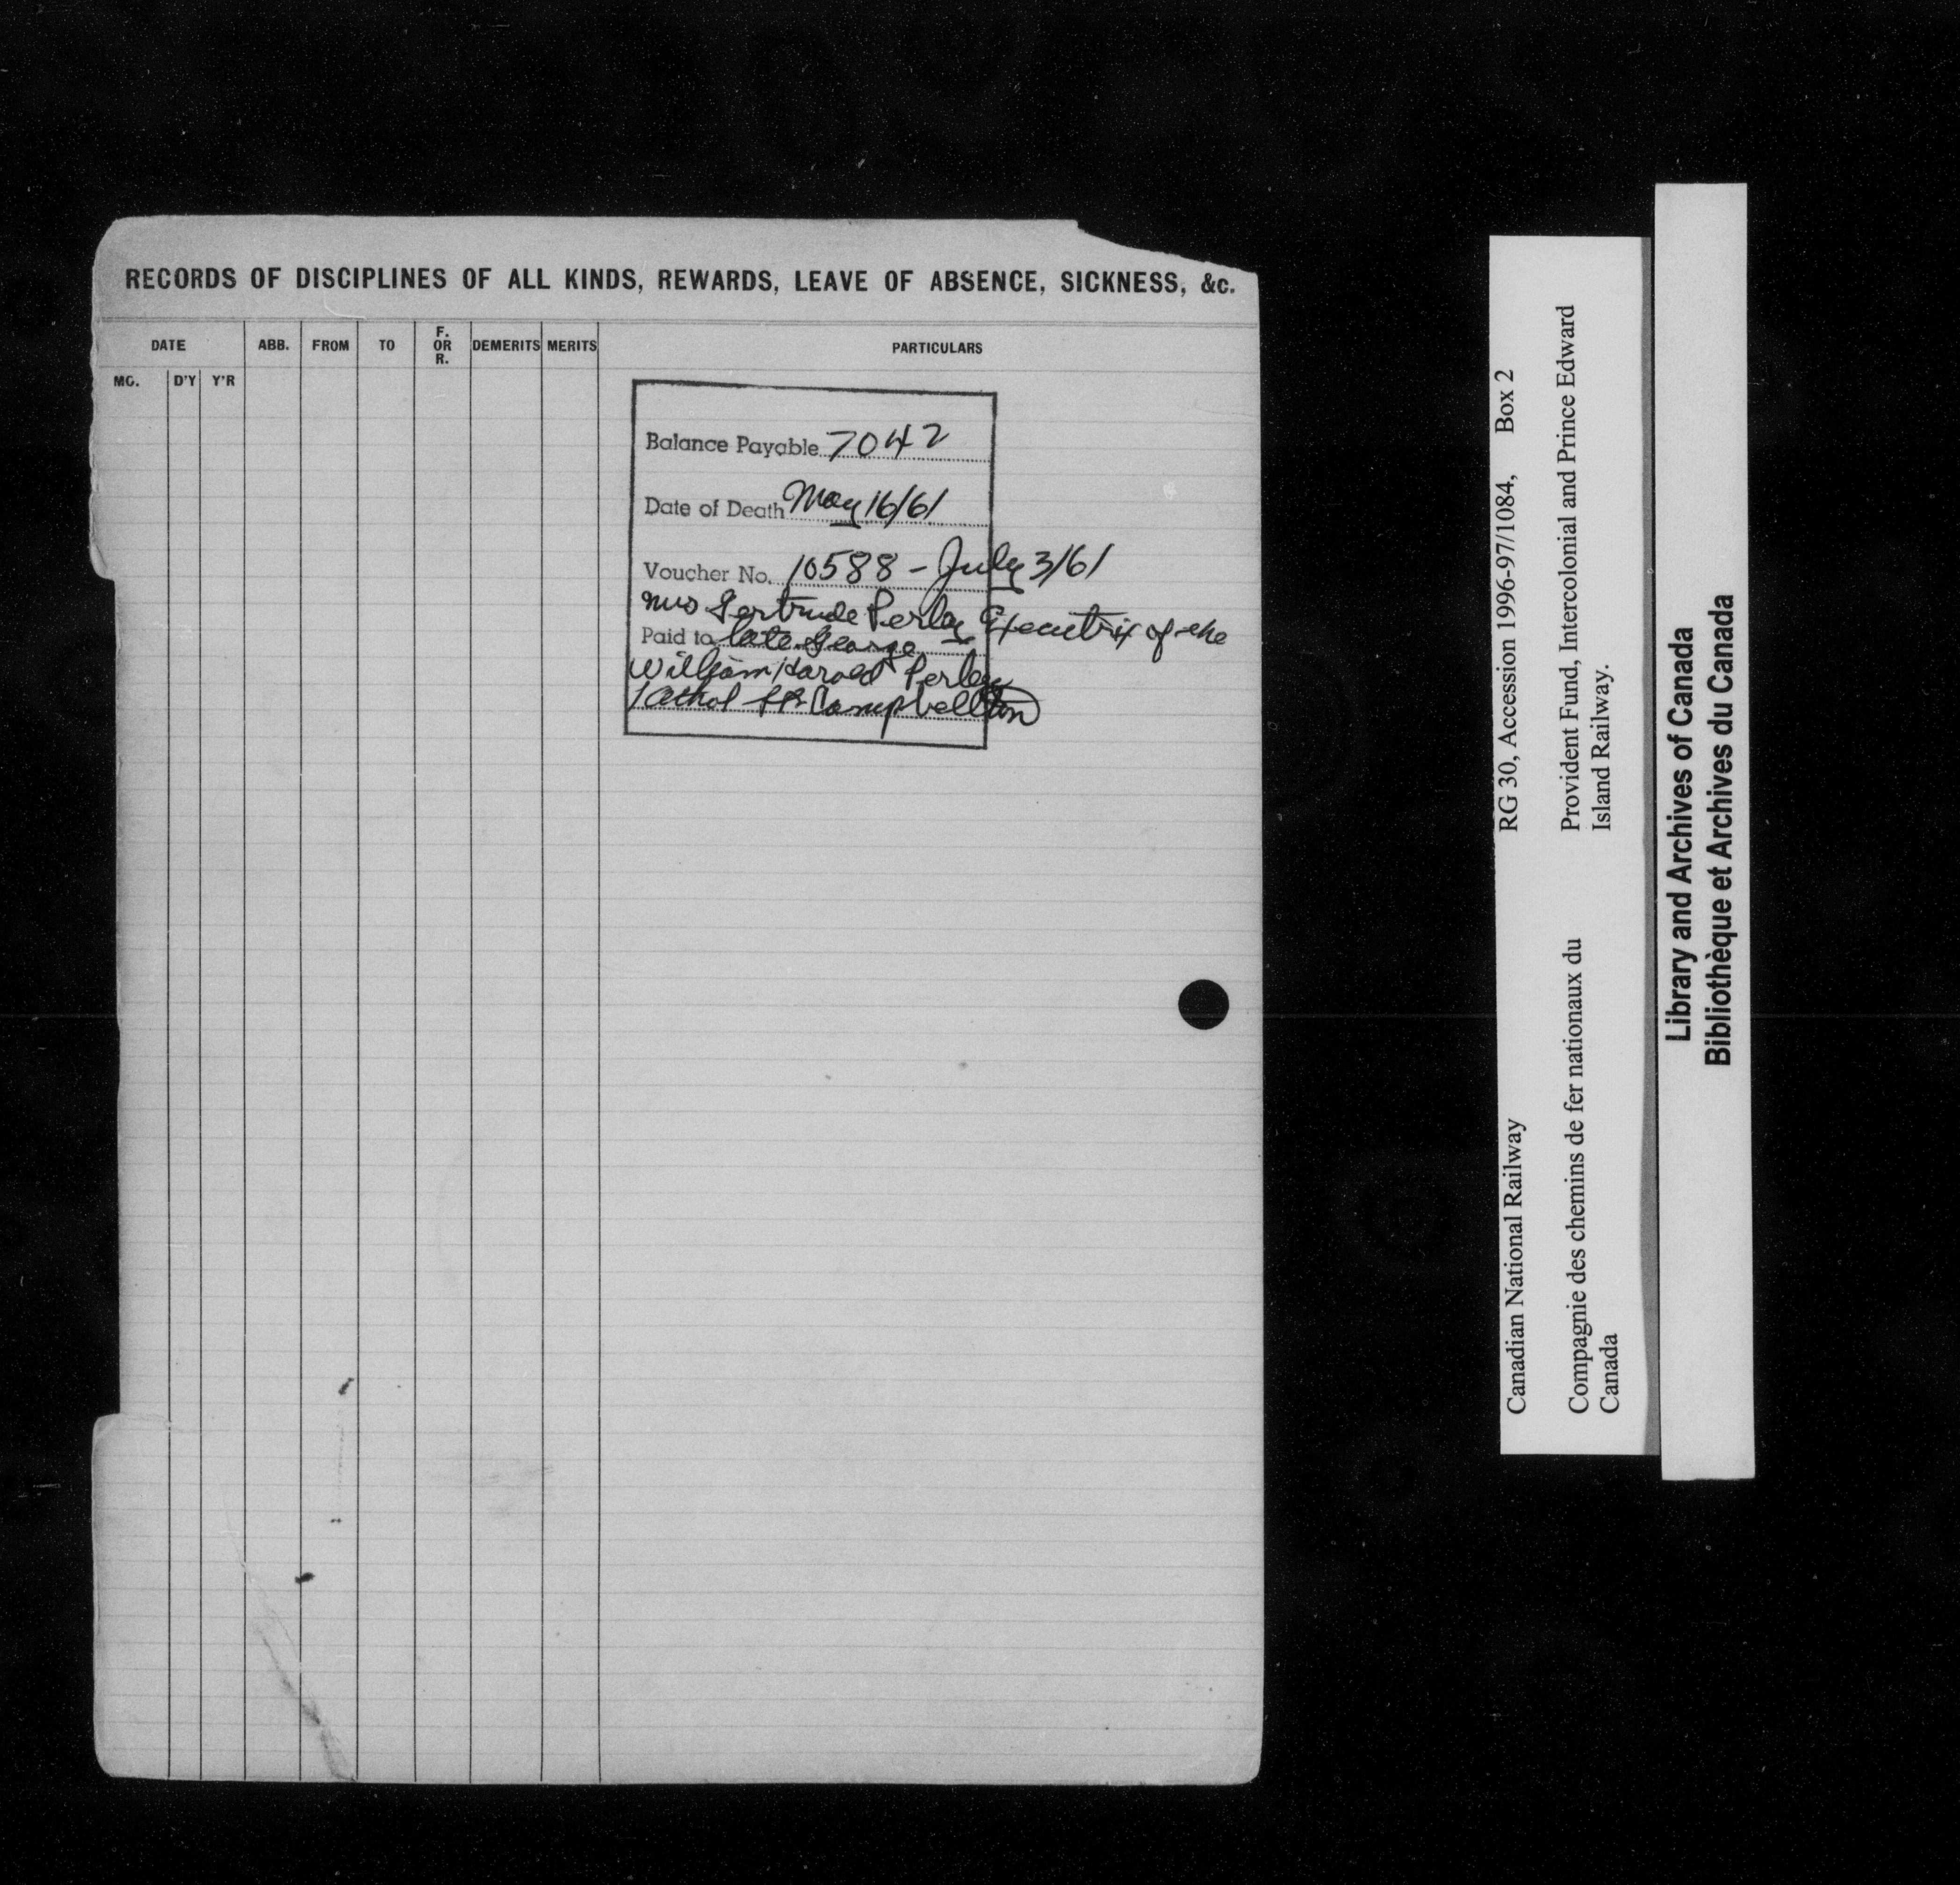 RECORDS OF DISCIPLINES OF ALL KINDS, REWARDS, LEAVE OF ABSENCE, SICKNESS, &c.
DATE ABB. FROM TO F. OR R. DEMERITS MERITS PARTICULARS
MO. D'Y Y'R
Balance Payable 7042
Date of Death May 16/61
Voucher No. 10588 - July 3/61
Mrs Gertrude Perley Executrix of the
Paid to late George
William Harold Perley
1 Athol St Campbellton
Canadian National Railway RG 30, Accession 1996-97/1084, Box 2
Compagnie des chemins de fer nationaux du
Canada
Provident Fund, Intercolonial and Prince Edward
Island Railway.
Library and Archives of Canada
Bibliothèque et Archives du Canada